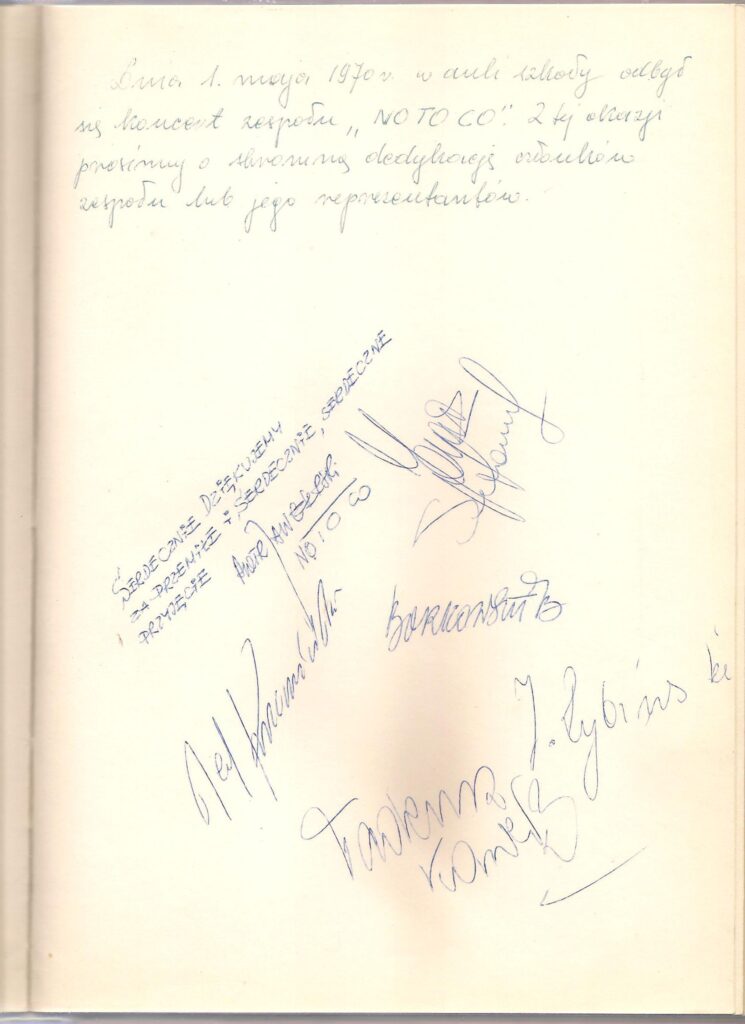 Dnia 1. maja 1970 r. w auli szkoły odbył
się koncert zespołu „NO TO CO". Z tej okazji
prosimy o skromną dedykację członków
zespołu lub jego reprezentantów.
SERDECZNIE DZIĘKUJEMY
ZA PRZEMIŁE I SERDECZNIE, SERDECZNE
PRZYJĘCIE
PIOTR JANCZERSKI
NO TO CO
Jerzy
BORKOWSKI B
J. Rybiński
Tadeusz